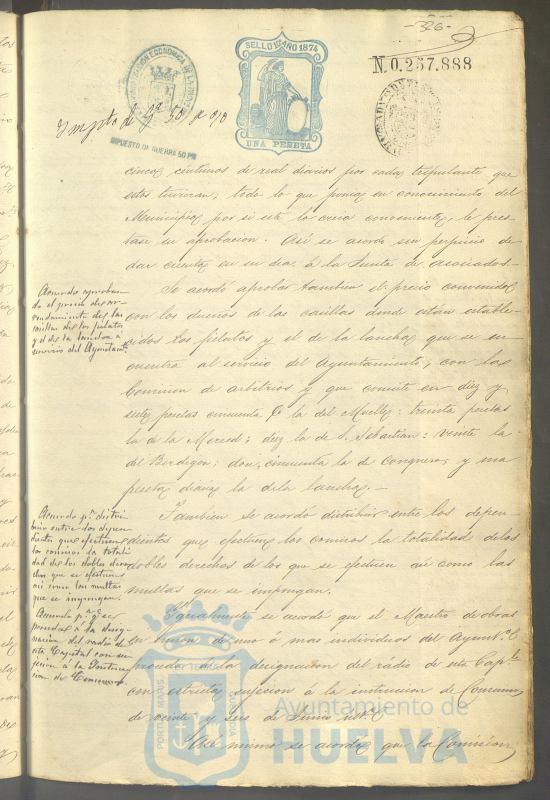 -36-
SELLO 10º AÑO 1874
N. 0.257.888
UNA PESETA
IMPUESTO DE GUERRA 50
cinco centimos de real diarios por cada tripulante que
estas tuvieran, todo lo que ponia en conocimiento del
Municipio, por si este lo creia conveniente, le pres-
tase su aprobacion. Asi se acordó sin perjuicio de
dar cuenta en su dia á la Junta de asociados.
Acuerdo aproban-
do el precio del ar-
rendamiento de las
casillas de los fielatos
y el de la lancha á
servicio del Ayuntamto
Se acordó aprobar tambien el precio convenido
con los dueños de las casillas donde están estable-
cidos los fielatos y el de la lancha que se en-
cuentra al servicio del Ayuntamiento, con la
Comision de arbitrios y que consiste en diez y
siete pesetas cincuenta la del Muelle: treinta pesetas
la de la Merced: diez la de S. Sebastian: veinte la
del Berdigon: doce, cincuenta la de Conquero, y una
peseta diaria la de la lancha.
Acuerdo pa distri-
buir entre los depen-
dientes que efectuen
los comisos la totali-
dad de los dobles dere-
chos que se efectuen
asi como las multas
que se impongan.
Tambien se acordó distribuir entre los depen-
dientes que efectuen los comisos la totalidad de los
dobles derechos de los que se efectuen asi como las
multas que se impongan.
Acuerdo pa qe se
proceda á la desig-
nacion del rádio de
esta Capital con su-
jecion á la Instruc-
cion de Consumos
Igualmente se acordó que el Maestro de obras
en union de uno ó mas individuos del Ayuntto
proceda á la designacion del rádio de esta Capital
con estricta sujecion á la instruccion de Consumos
de veinte y seis de Junio últo
Asi mismo se acordó que la Comision
Ayuntamiento de
HUELVA